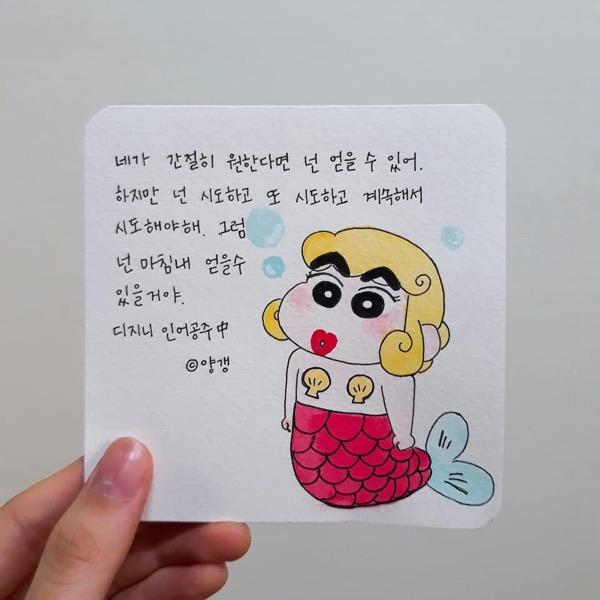 네가 간절히 원한다면 넌 얻을 수 있어.
하지만 넌 시도하고 또 시도하고 계속해서
시도해야해. 그럼
넌 마침내 얻을수
있을거야.
디지니 인어공주 中
©양갱